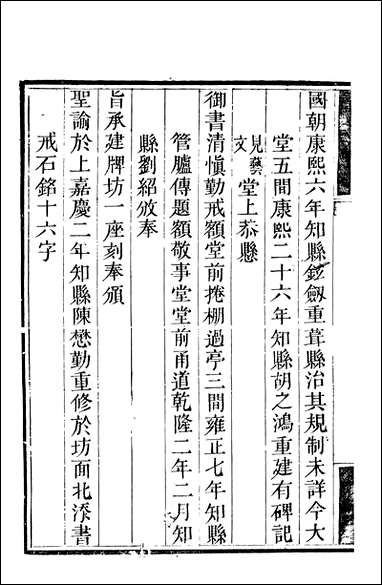 國朝康熙六年知縣鉉劔重葺縣治其規制未詳今大
堂五間康熙二十六年知縣胡之鴻重建有碑記
見藝
文
堂上恭懸
御書清愼勤戒額堂前捲棚過亭三間雍正七年知縣
管臚傳題額敬事堂堂前甬道乾隆二年二月知
縣劉紹攽奉
旨承建牌坊一座刻奉頒
聖諭於上嘉慶二年知縣陳懋勤重修於坊面北添書
戒石銘十六字